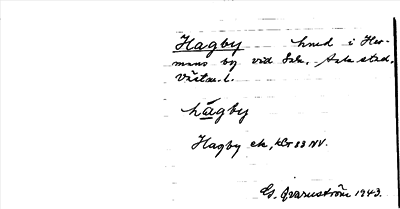 Hagby hmd i Her-
mans by vid Sala, Sala stad,
Västm. l.
hagby
Hagby ek, kbr 83 NV.
G. Qvarnström 1943.